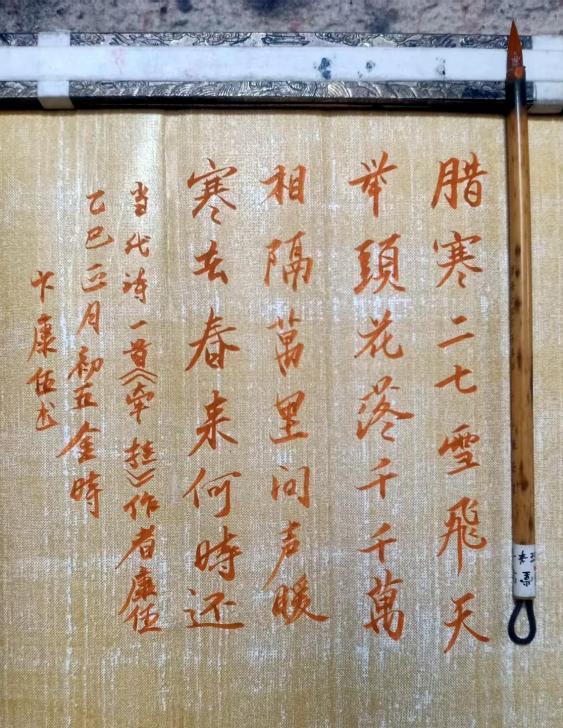 腊寒二七雪飛天
举頭花落千千萬
相隔萬里问声暖
寒去春来何時还
当代诗一首《牵挂》作者康伍
乙巳正月初五金時
卞康伍书